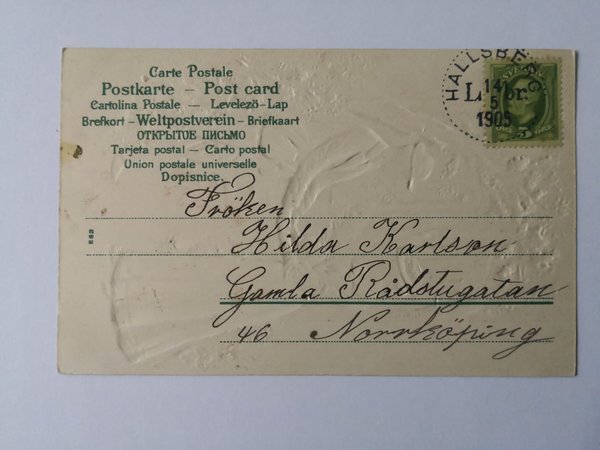 Carte Postale
Postkarte – Post card
Cartolina Postale – Levelező-Lap
Brefkort – Weltpostverein – Briefkaart
ОТКРЫТОЕ ПИСЬМО
Tarjeta postal – Carto postal
Union postale universelle
Dopisnice.
HALLSBERG
14
5
1905
5
Fröken
Hilda Karlson
Gamla Rådstugatan
46 Norrköping